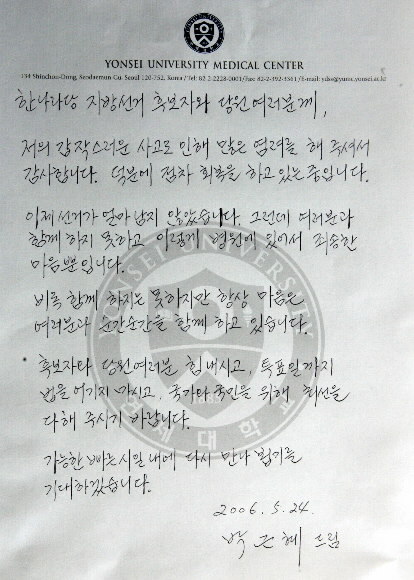 YONSEI UNIVERSITY MEDICAL CENTER
134 Shinchon-Dong, Seodaemun-Gu, Seoul 120-752, Korea / Tel: 82 2-2228-0001 / Fax: 82-2-392-3361 / E-mail: ydss@yumc.yonsei.ac.kr
한나라당 지방선거 후보자와 당원여러분께,
저의 갑작스러운 사고로 인해 많은 염려를 해 주셔서
감사합니다. 덕분에 점차 회복을 하고 있는 중입니다.
이제 선거가 얼마 남지 않았습니다. 그런데 여러분과
함께 하지 못하고 이렇게 병원에 있어서 죄송한
마음뿐입니다.
비록 함께 하지는 못하지만 항상 마음은
여러분과 순간순간을 함께 하고 있습니다.
후보자와 당원여러분 힘내시고, 투표일까지
법을 어기지 마시고, 국가와 국민을 위해 최선을
다해 주시기 바랍니다.
가능한 빠른시일내에 다시 만나 뵙기를
기대하겠습니다.
2006. 5. 24.
박근혜 드림
YONSEI UNIVERSITY
연세대학교